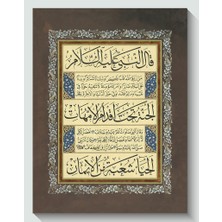 قال النبي عليه السلام
الجنة تحت اقدام الامهات
الحياء شعبة من الايمان